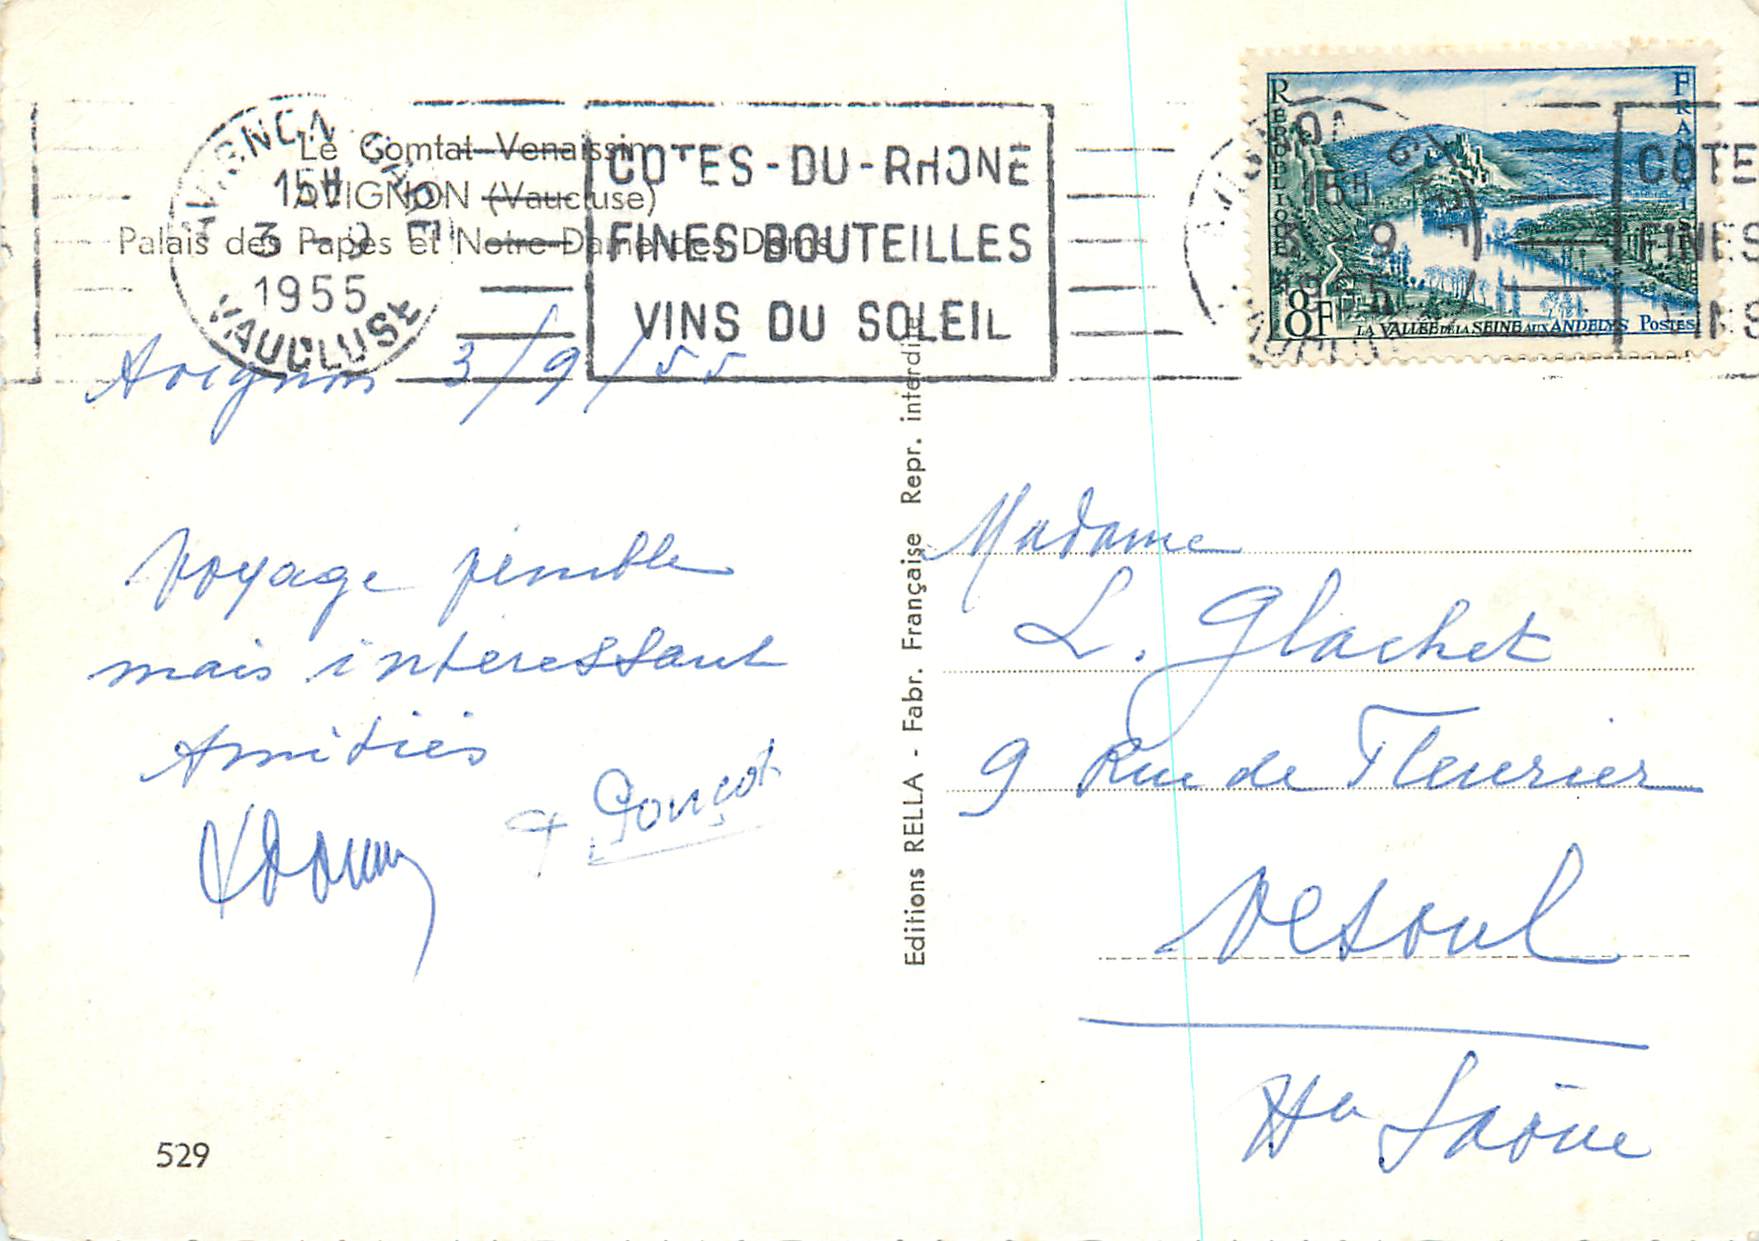 Le Comtat Venaissin
AVIGNON (Vaucluse)
Palais des Papes et Notre-Dame des Doms
AVIGNON GARE
15H
3 - 9
1955
VAUCLUSE
COTES-DU-RHONE
FINES BOUTEILLES
VINS DU SOLEIL
REPUBLIQUE FRANCAISE
8F
LA VALLEE DE LA SEINE AUX ANDELYS POSTES
15H
3 - 9
1955
COTE
FINES
VINS
Avignon 3/9/55
Voyage pénible
mais intéressant
Amitiés
Editions RELLA - Fabr. Française Repr. interdite
Madame
L. Glachet
9 Rue de Fleurier
Vesoul
Hte Saône
529